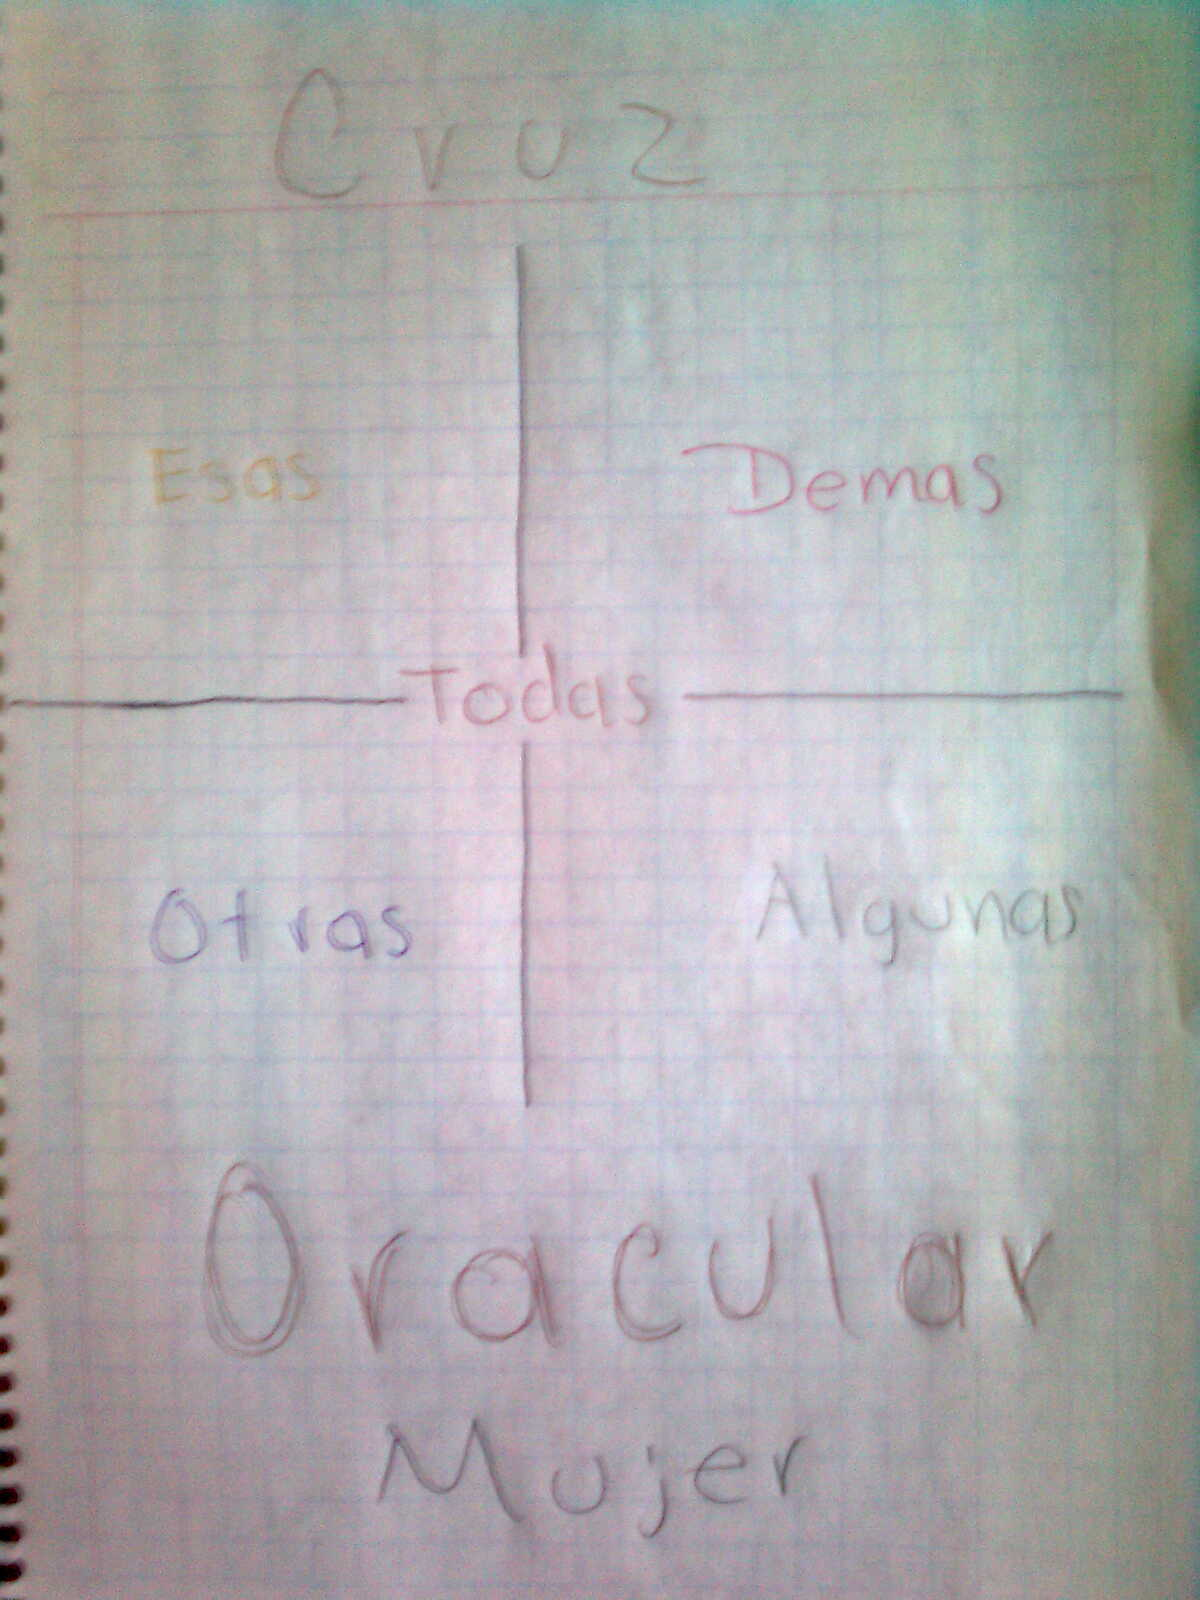 Cruz
Esas Demas
Todas
Otras Algunas
Oracular
Mujer